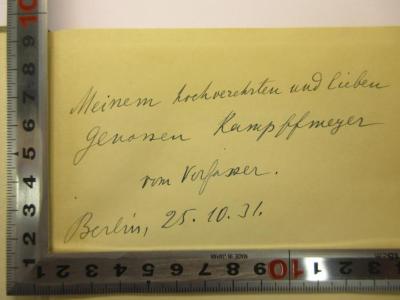 Meinem hochverehrten und lieben
Genossen Kampffmeyer
vom Verfasser.
Berlin, 25.10.31.
MADE IN JAPAN
10 9 8 7 6 5 4 3 2 1
1 2 3 4 5 6 7 8 9 10 1 2 3 4